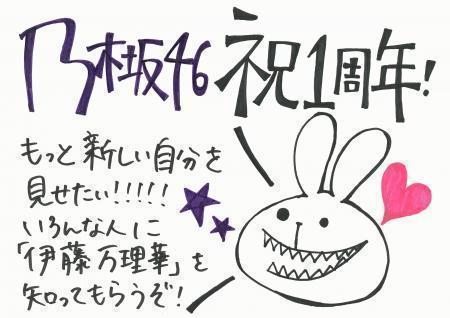 乃木坂46 祝1周年!
もっと新しい自分を
見せたい!!!!!
いろんな人に
「伊藤万理華」を
知ってもらうぞ!